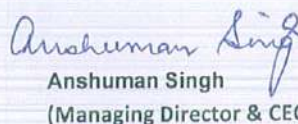 Anshuman Sing
Anshuman Singh
(Managing Director & CE